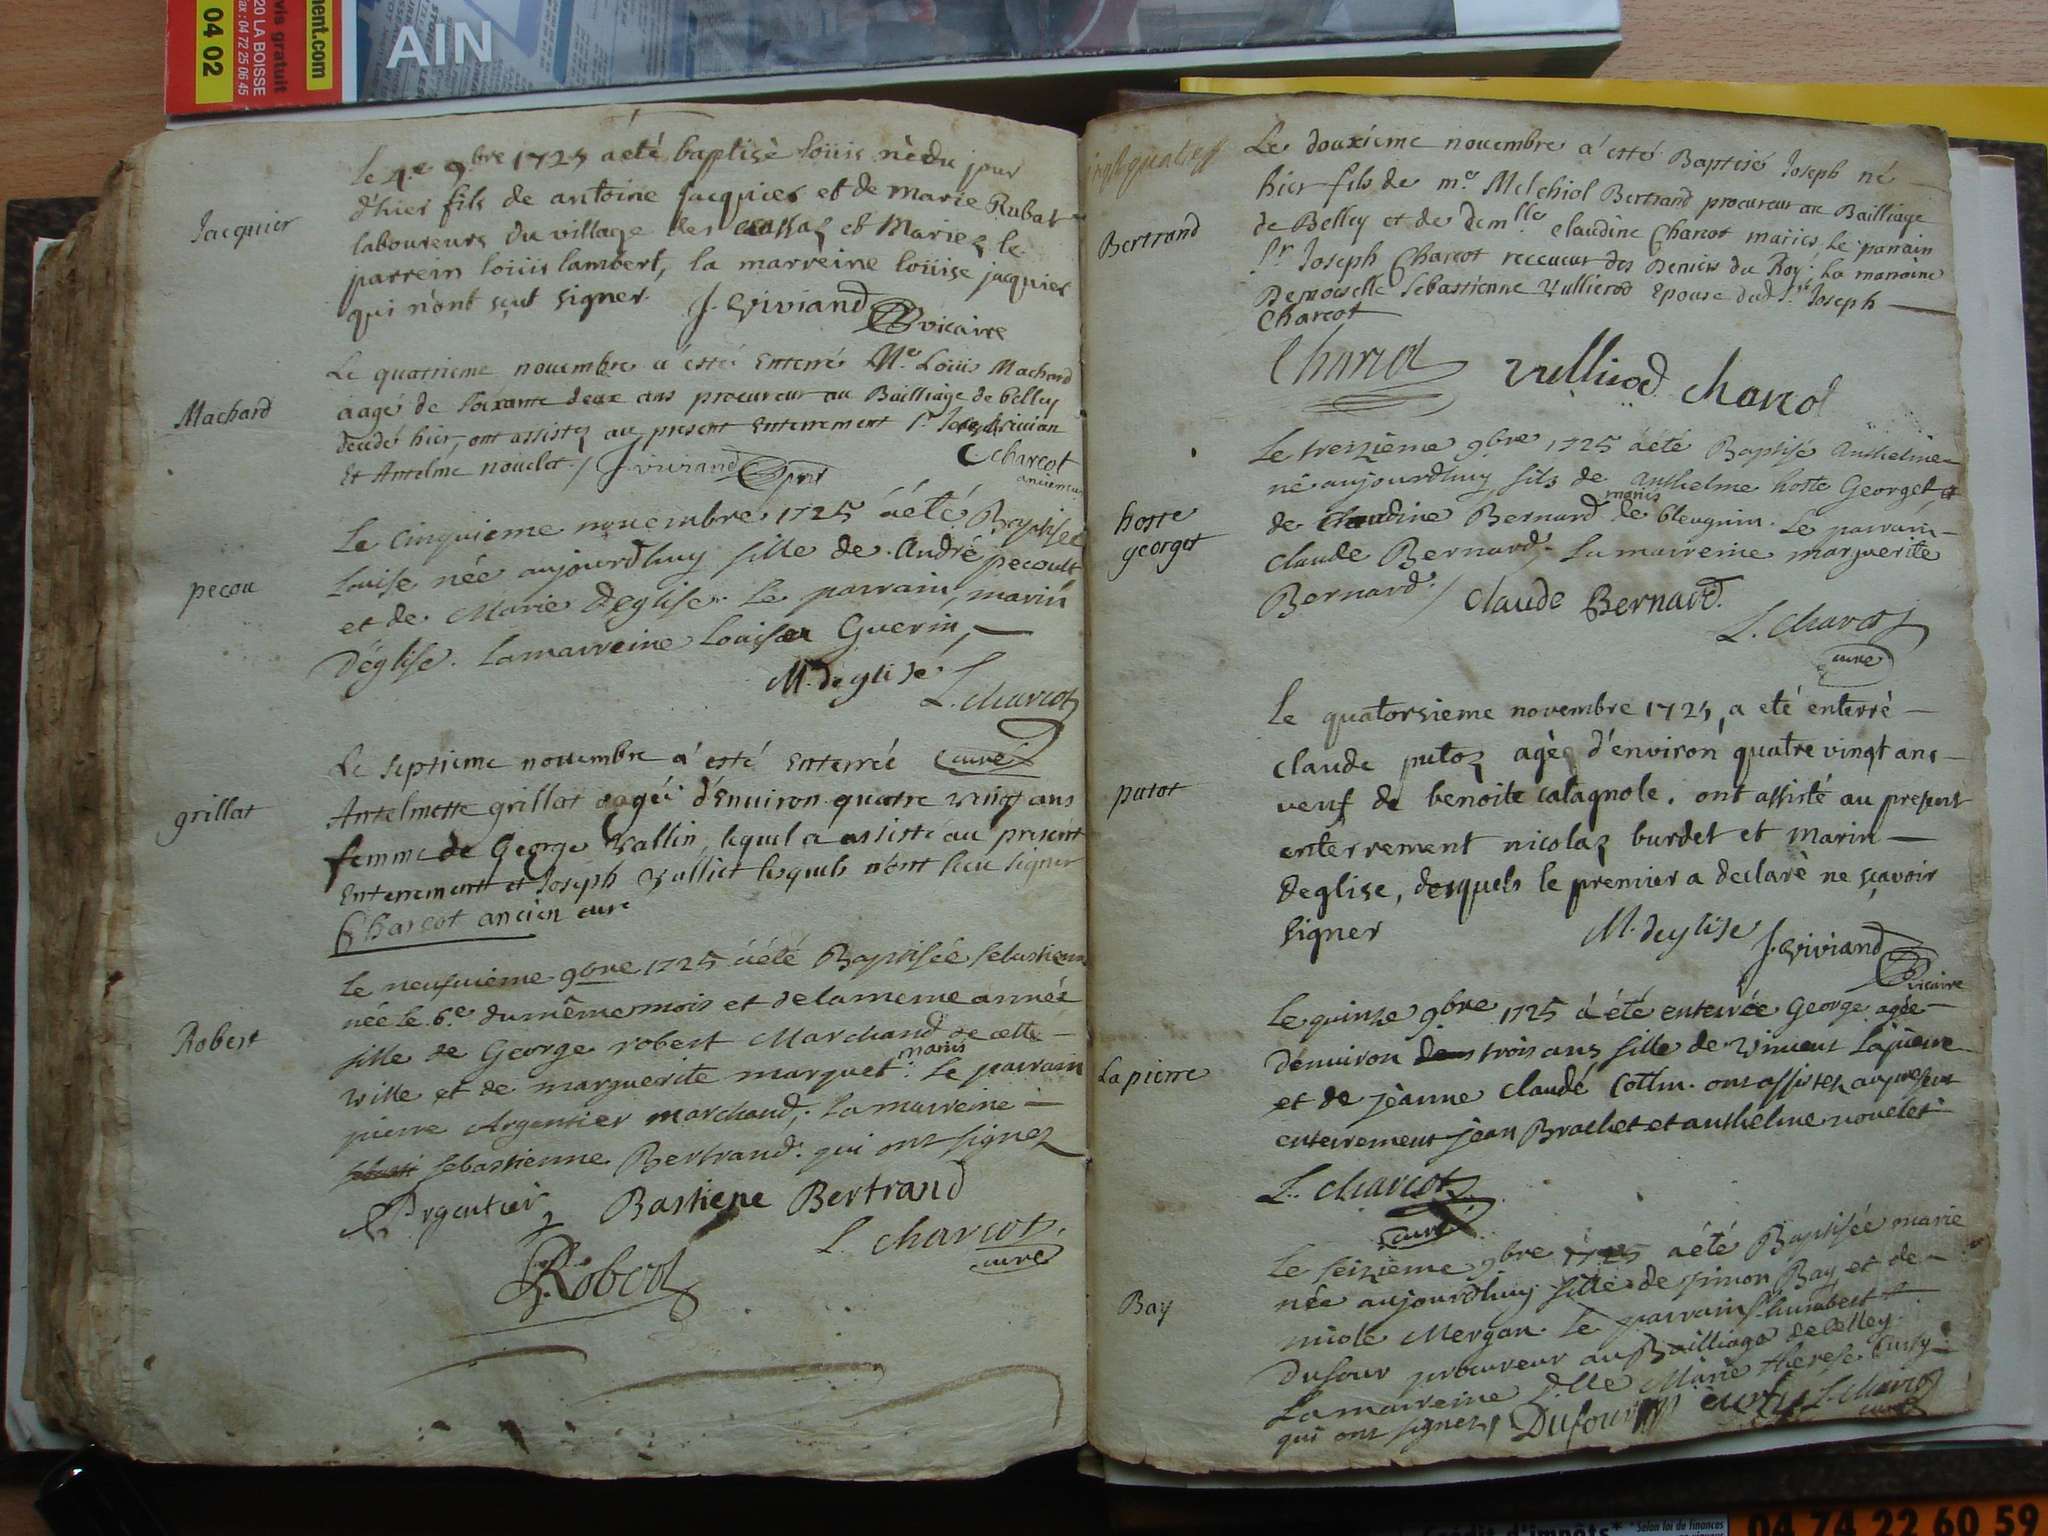 ment.com
vis gratuit
20 LA BOISSE
ax : 04 72 25 06 45
04 02
AIN
Jacquier
le 4.e 9bre 1725 a eté baptisè loüis nèdu jour
d'hier fils de antoine jacquier et de marie Rubat
laboureurs du village des et Mariez le
parrein loüis lambert, la marreine loüise jacquier
qui n'ont sçut signer. J. Viviand
vicaire
Machard
Le quatrieme novembre a esté Enterré Me. Loüis Machard
aagé de soixante deux ans procureur au Bailliage de belley
decedé hier, ont assistez au present Enterrement Sr Joseph vivian
Et Antelme nouelet./ J. viviand Charcot
ancien cure
pecou
Le cinquieme novembre 1725 a été Baptisée
Louise née aujourdhuy fille de André pecoult
et de Marie Deglise. Le parrain, marin
Déglise. La marreine Louise Guerin,
M. deglise
L. charcot
curé
grillat
Le septieme novembre a esté Enterrée
Antelmette grillat aagée d'Environ quatre vingt ans
femme de George Vallin, lequel a assisté au present
Enterrement et Joseph Vulliet lesquels n'ont sceu signer
Charcot ancien cure
Robert
Le neufvieme 9bre 1725 a été Baptisée sebastienne
née le 6.e du même mois et de la meme année
fille de George robert Marchand de cette
ville et de marguerite marquet mariés. Le parrain
pierre Argentier marchand, la marreine
sebastienne Bertrand. qui ont signez
Argentier Bastiene Bertrand
L. charcot
curé
Robert
Bertrand
Le douxieme novembre a esté Baptisé Joseph né
hier fils de me. Melchiol Bertrand procureur au Bailliage
de Belley et de demlle Claudine Charcot mariés. Le parrain
Sr. Joseph Charcot receueur des Deniers du Roy; la marraine
Demoiselle Sebastienne Vullierod Epouse dud. Sr. Joseph
Charcot
Charcot Vullierod Charcot
hoste
georget
Le treizieme 9bre 1725 a été Baptisé Anthelme
né aujourdhuy fils de Anthelme hoste Georget, et
de Claudine Bernard mariés de bleugnin. Le parrain
Claude Bernard, La marreine marguerite
Bernard./ Claude Bernard.
L. charcot
curé
putot
Le quatorsieme novembre 1725, a eté enterrè
claude putoz agèe d'environ quatre vingt ans
veuf de benoite catagnole. ont assisté au present
enterrement nicolaz burdet et marin
deglise, desquels le premier a declarè ne sçavoir
signer M. deglise J. Viviand
vicaire
Lapierre
Le quinze 9bre 1725 a été enterrée George agée
d'environ trois ans fille de vincent Lapierre
et de jeanne claude Cottin. ont assistez au present
enterrement jean Brachet et anthelme nouelet
L. charcot
curé
Bay
Le seizieme 9bre 1725 a été Baptisée marie
née aujourdhuy fille de simon Bay et de
nicole Mergan. Le parrain Sr humbert
Dufour procureur au Bailliage de belley.
La marreine Dlle Marie therese Cussy
qui ont signez/ Dufour L. charcot
curé
Crédit d'impôts*
*Selon loi de finances
04 74 22 60 59